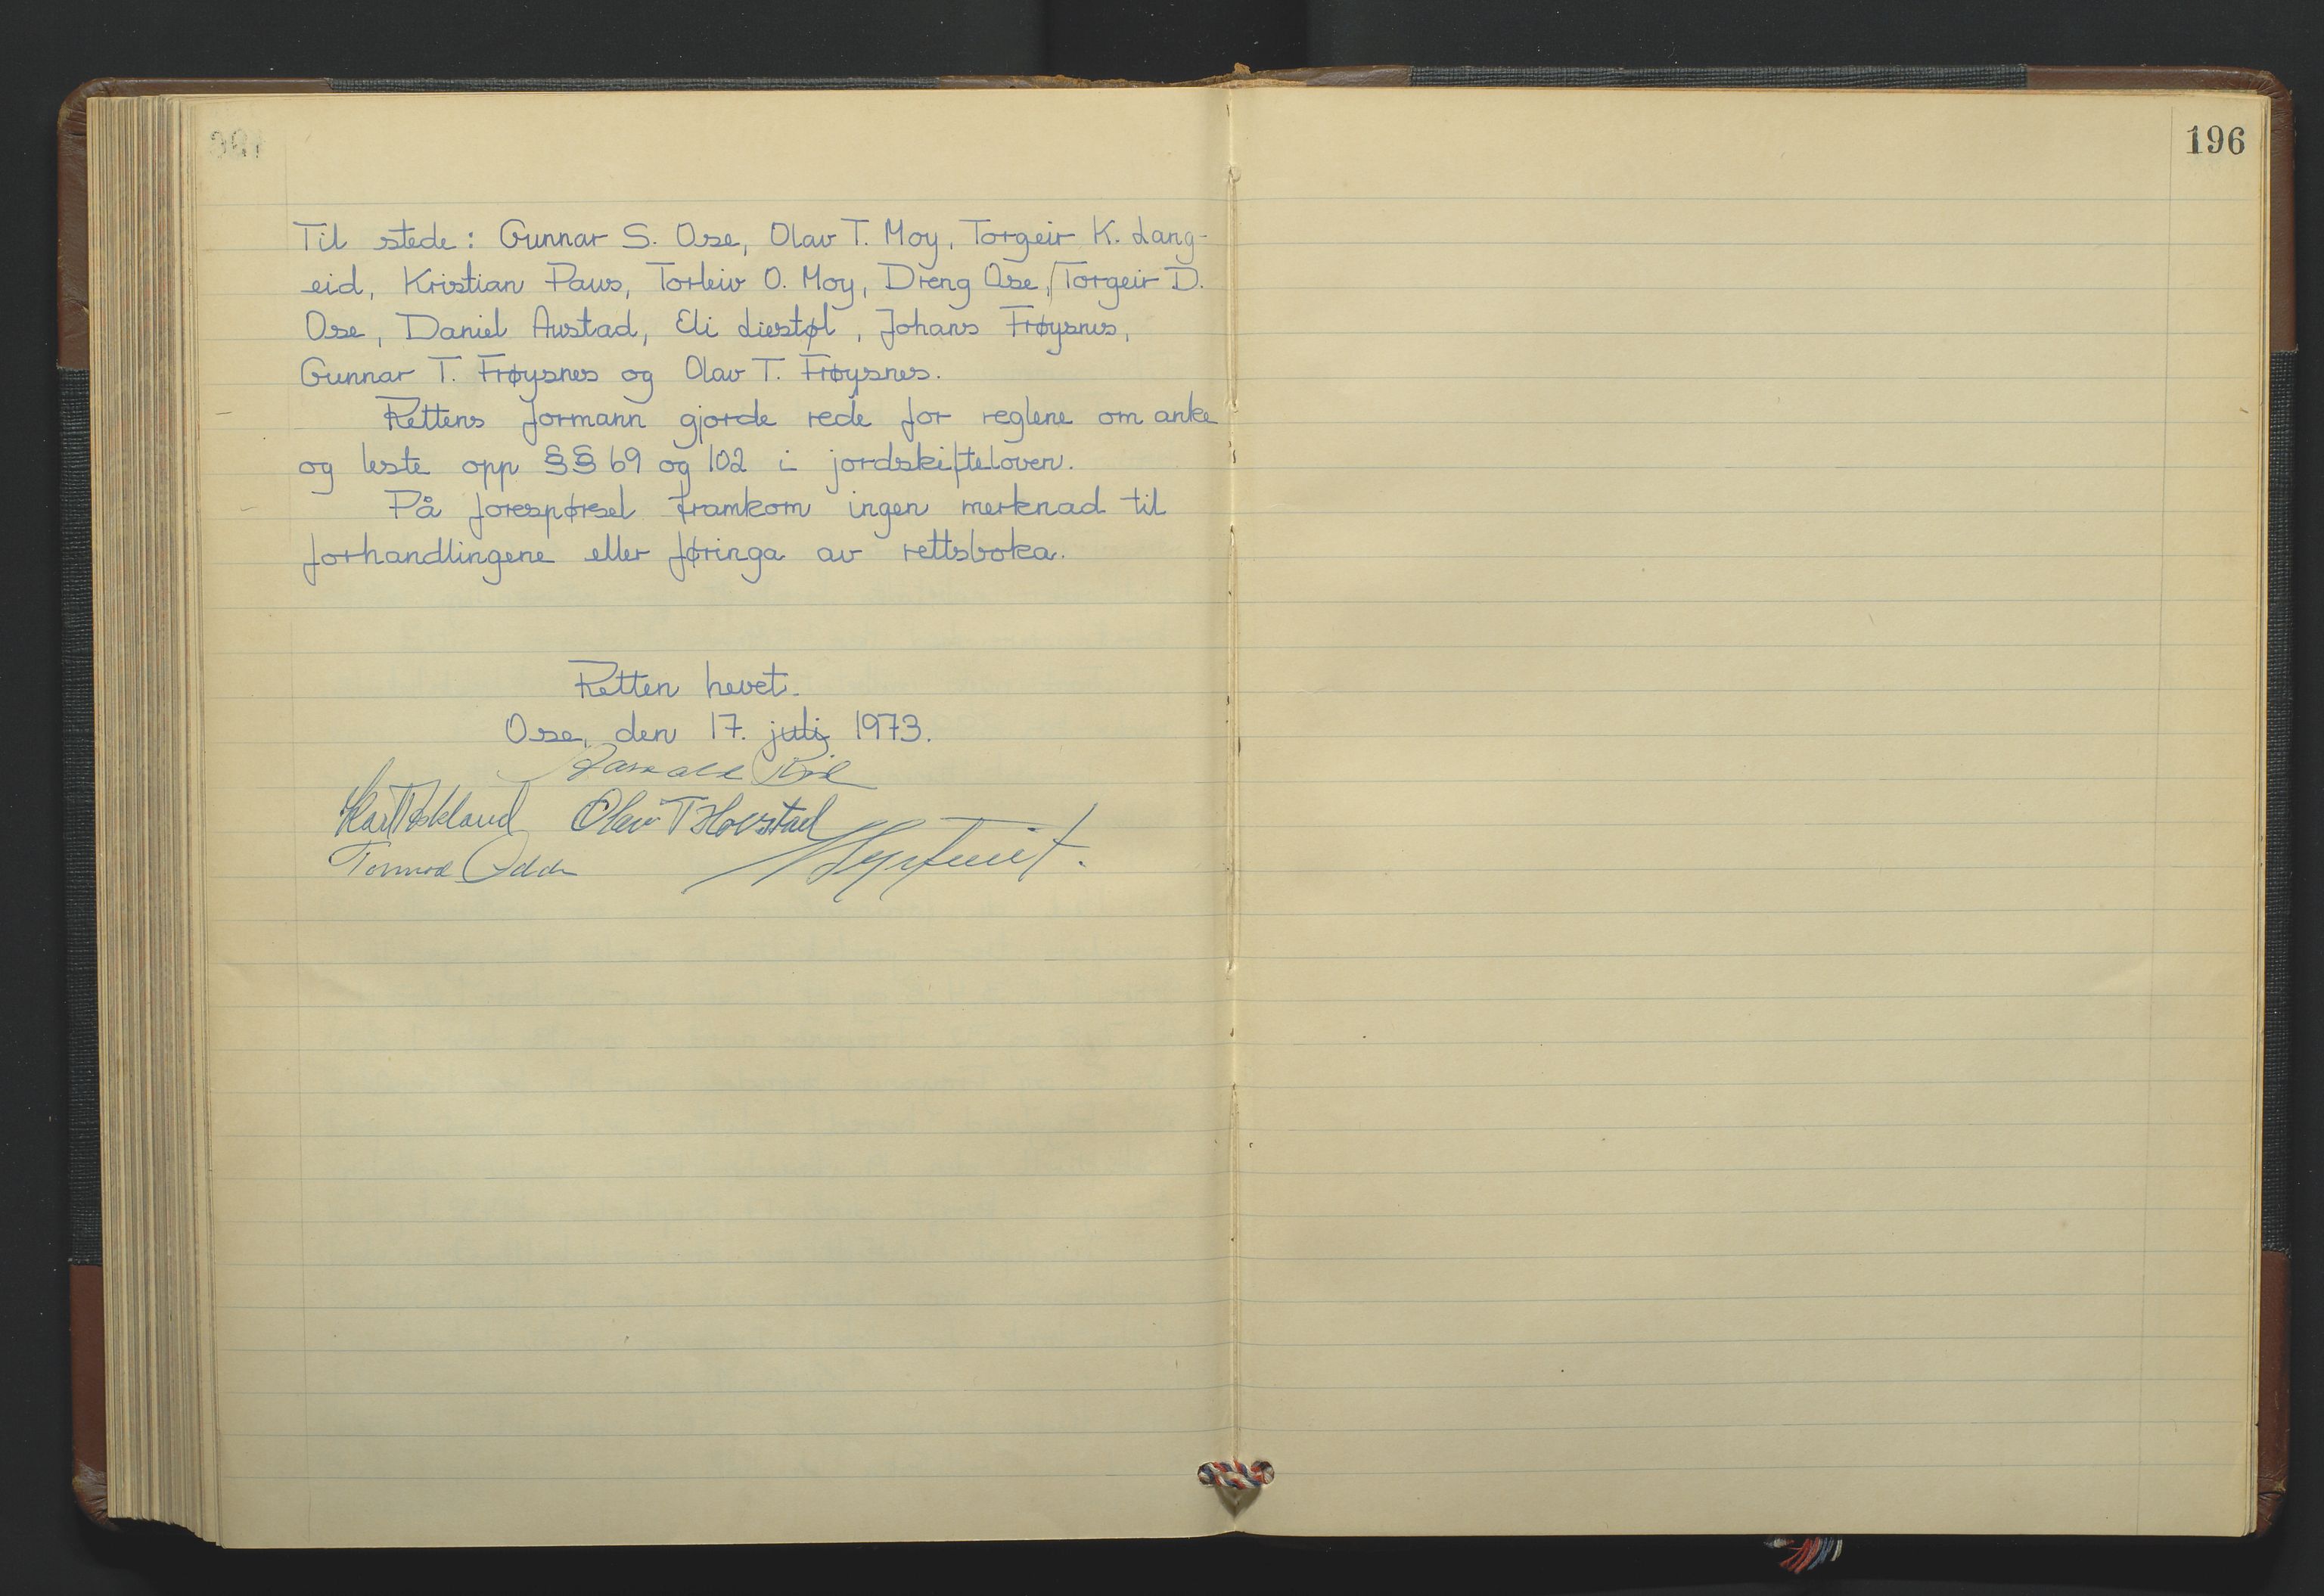 Til stede: Gunnar S. Ose, Olav T. Moy, Torgeir K. Lang-
eid, Kristian Paus, Torleiv O. Moy, Dreng Ose, Torgeir D.
Ose, Daniel Austad, Eli Liestøl, Johans Frøysnes,
Gunnar T. Frøysnes og Olav T. Frøysnes.
Rettens formann gjorde rede for reglene om anke
og leste opp §§ 69 og 102 i jordskifteloven.
På forespørsel framkom ingen merknad til
forhandlingene eller føringa av rettsboka.
Retten hevet.
Ose, den 17. juli 1973.
Olav T Hovstad
196